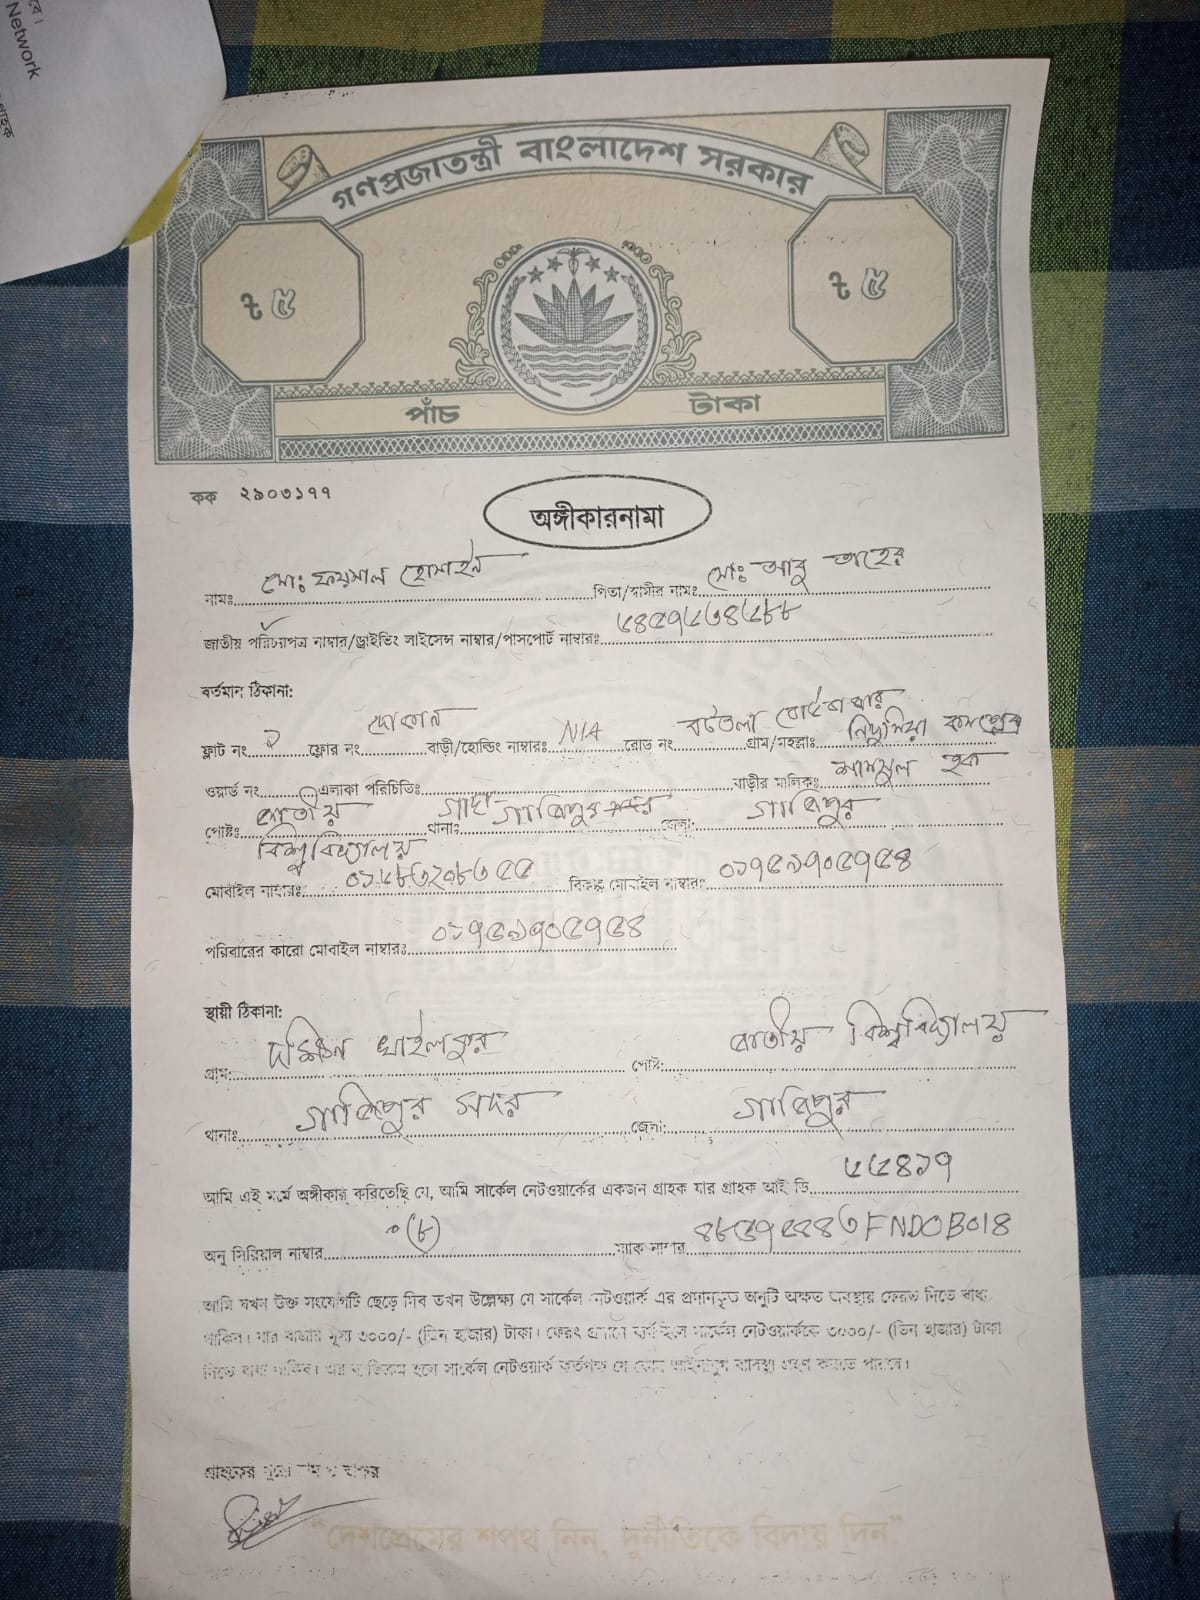 বে।
Network
গ্রাহক
গণপ্রজাতন্ত্রী বাংলাদেশ সরকার
৳ ৫ ৳ ৫
পাঁচ টাকা
কক ২৯০৩১৭৭
অঙ্গীকারনামা
নামঃ মোঃ ফয়সাল হোসাইন পিতা/স্বামীর নামঃ মোঃ আবু তাহের
জাতীয় পরিচয়পত্র নাম্বার/ড্রাইভিং লাইসেন্স নাম্বার/পাসপোর্ট নাম্বারঃ
বর্তমান ঠিকানা:
ফ্লাট নং ২ ফ্লোর নং দোকান বাড়ী/হোল্ডিং নাম্বারঃ N/A রোড নং বটতলা গ্রাম/মহল্লাঃ
ওয়ার্ড নং এলাকা পরিচিতিঃ বাড়ীর মালিকঃ শামসুল হক
পোষ্টঃ জাতীয় বিশ্ববিদ্যালয় থানাঃ গাজীপুর সদর জেলা: গাজিপুর
মোবাইল নাম্বারঃ বিকল্প মোবাইল নাম্বারঃ ০১৭৫৯৭০৫৭৫৪
পরিবারের কারো মোবাইল নাম্বারঃ ০১৭৫৯৭০৫৭৫৪
স্থায়ী ঠিকানা:
গ্রাম: দক্ষিন খাইলকুর পোষ্ট: জাতীয় বিশ্ববিদ্যালয়
থানাঃ গাজিপুর সদর জেলা: গাজিপুর
আমি এই মর্মে অঙ্গীকার করিতেছি যে, আমি সার্কেল নেটওয়ার্কের একজন গ্রাহক যার গ্রাহক আই ডি
অনু সিরিয়াল নাম্বার ম্যাক নাম্বার
আমি যখন উক্ত সংযোগটি ছেড়ে দিব তখন উল্লেক্ষ্য যে সার্কেল নেটওয়ার্ক এর প্রদানকৃত অনুটি অক্ষত অবস্থায় ফেরত দিতে বাধ্য
থাকিব। যার বাজার মূল্য ৩০০০/- (তিন হাজার) টাকা। ফেরৎ প্রদানে ব্যর্থ হলে সার্কেল নেটওয়ার্ককে ৩০০০/- (তিন হাজার) টাকা
দিতে বাধ্য থাকিব। এর ব্যতিক্রম হলে সার্কেল নেটওয়ার্ক কর্তৃপক্ষ যে কোন আইনানুগ ব্যবস্থা গ্রহণ করতে পারবে।
গ্রাহকের
"দেশপ্রেমের শপথ নিন, দুর্নীতিকে বিদায় দিন"